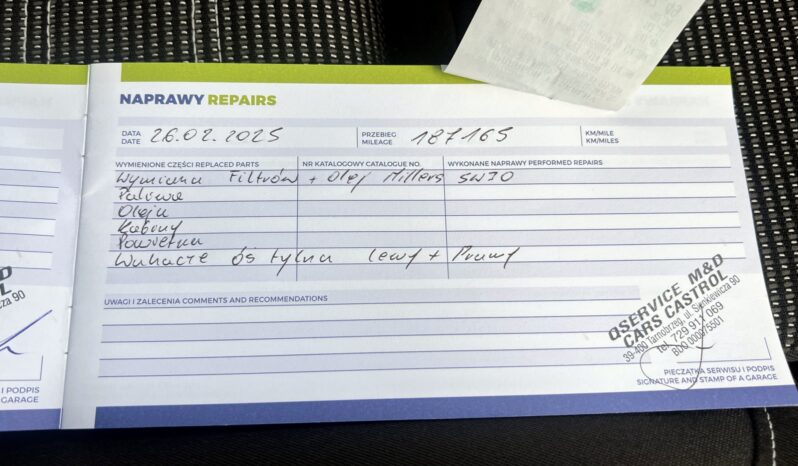 NAPRAWY REPAIRS
DATA
DATE
26.02.2025
PRZEBIEG
MILEAGE
187165
KM/MILE
KM/MILES
WYMIENIONE CZĘŚCI REPLACED PARTS
NR KATALOGOWY CATALOGUE NO.
WYKONANE NAPRAWY PERFORMED REPAIRS
Wymiana Filtrów + Olej Millers 5W30
Paliwa
Oleju
Kabiny
Powietrza
Wahacze oś tylna lewy + Prawy
UWAGI I ZALECENIA COMMENTS AND RECOMMENDATIONS
QSERVICE M&D
CARS CASTROL
39-400 Tarnobrzeg, ul. Sienkiewicza 90
Tel. 729 911 069
BDO 000075501
PIECZĄTKA SERWISU I PODPIS
SIGNATURE AND STAMP OF A GARAGE
I PODPIS
A GARAGE